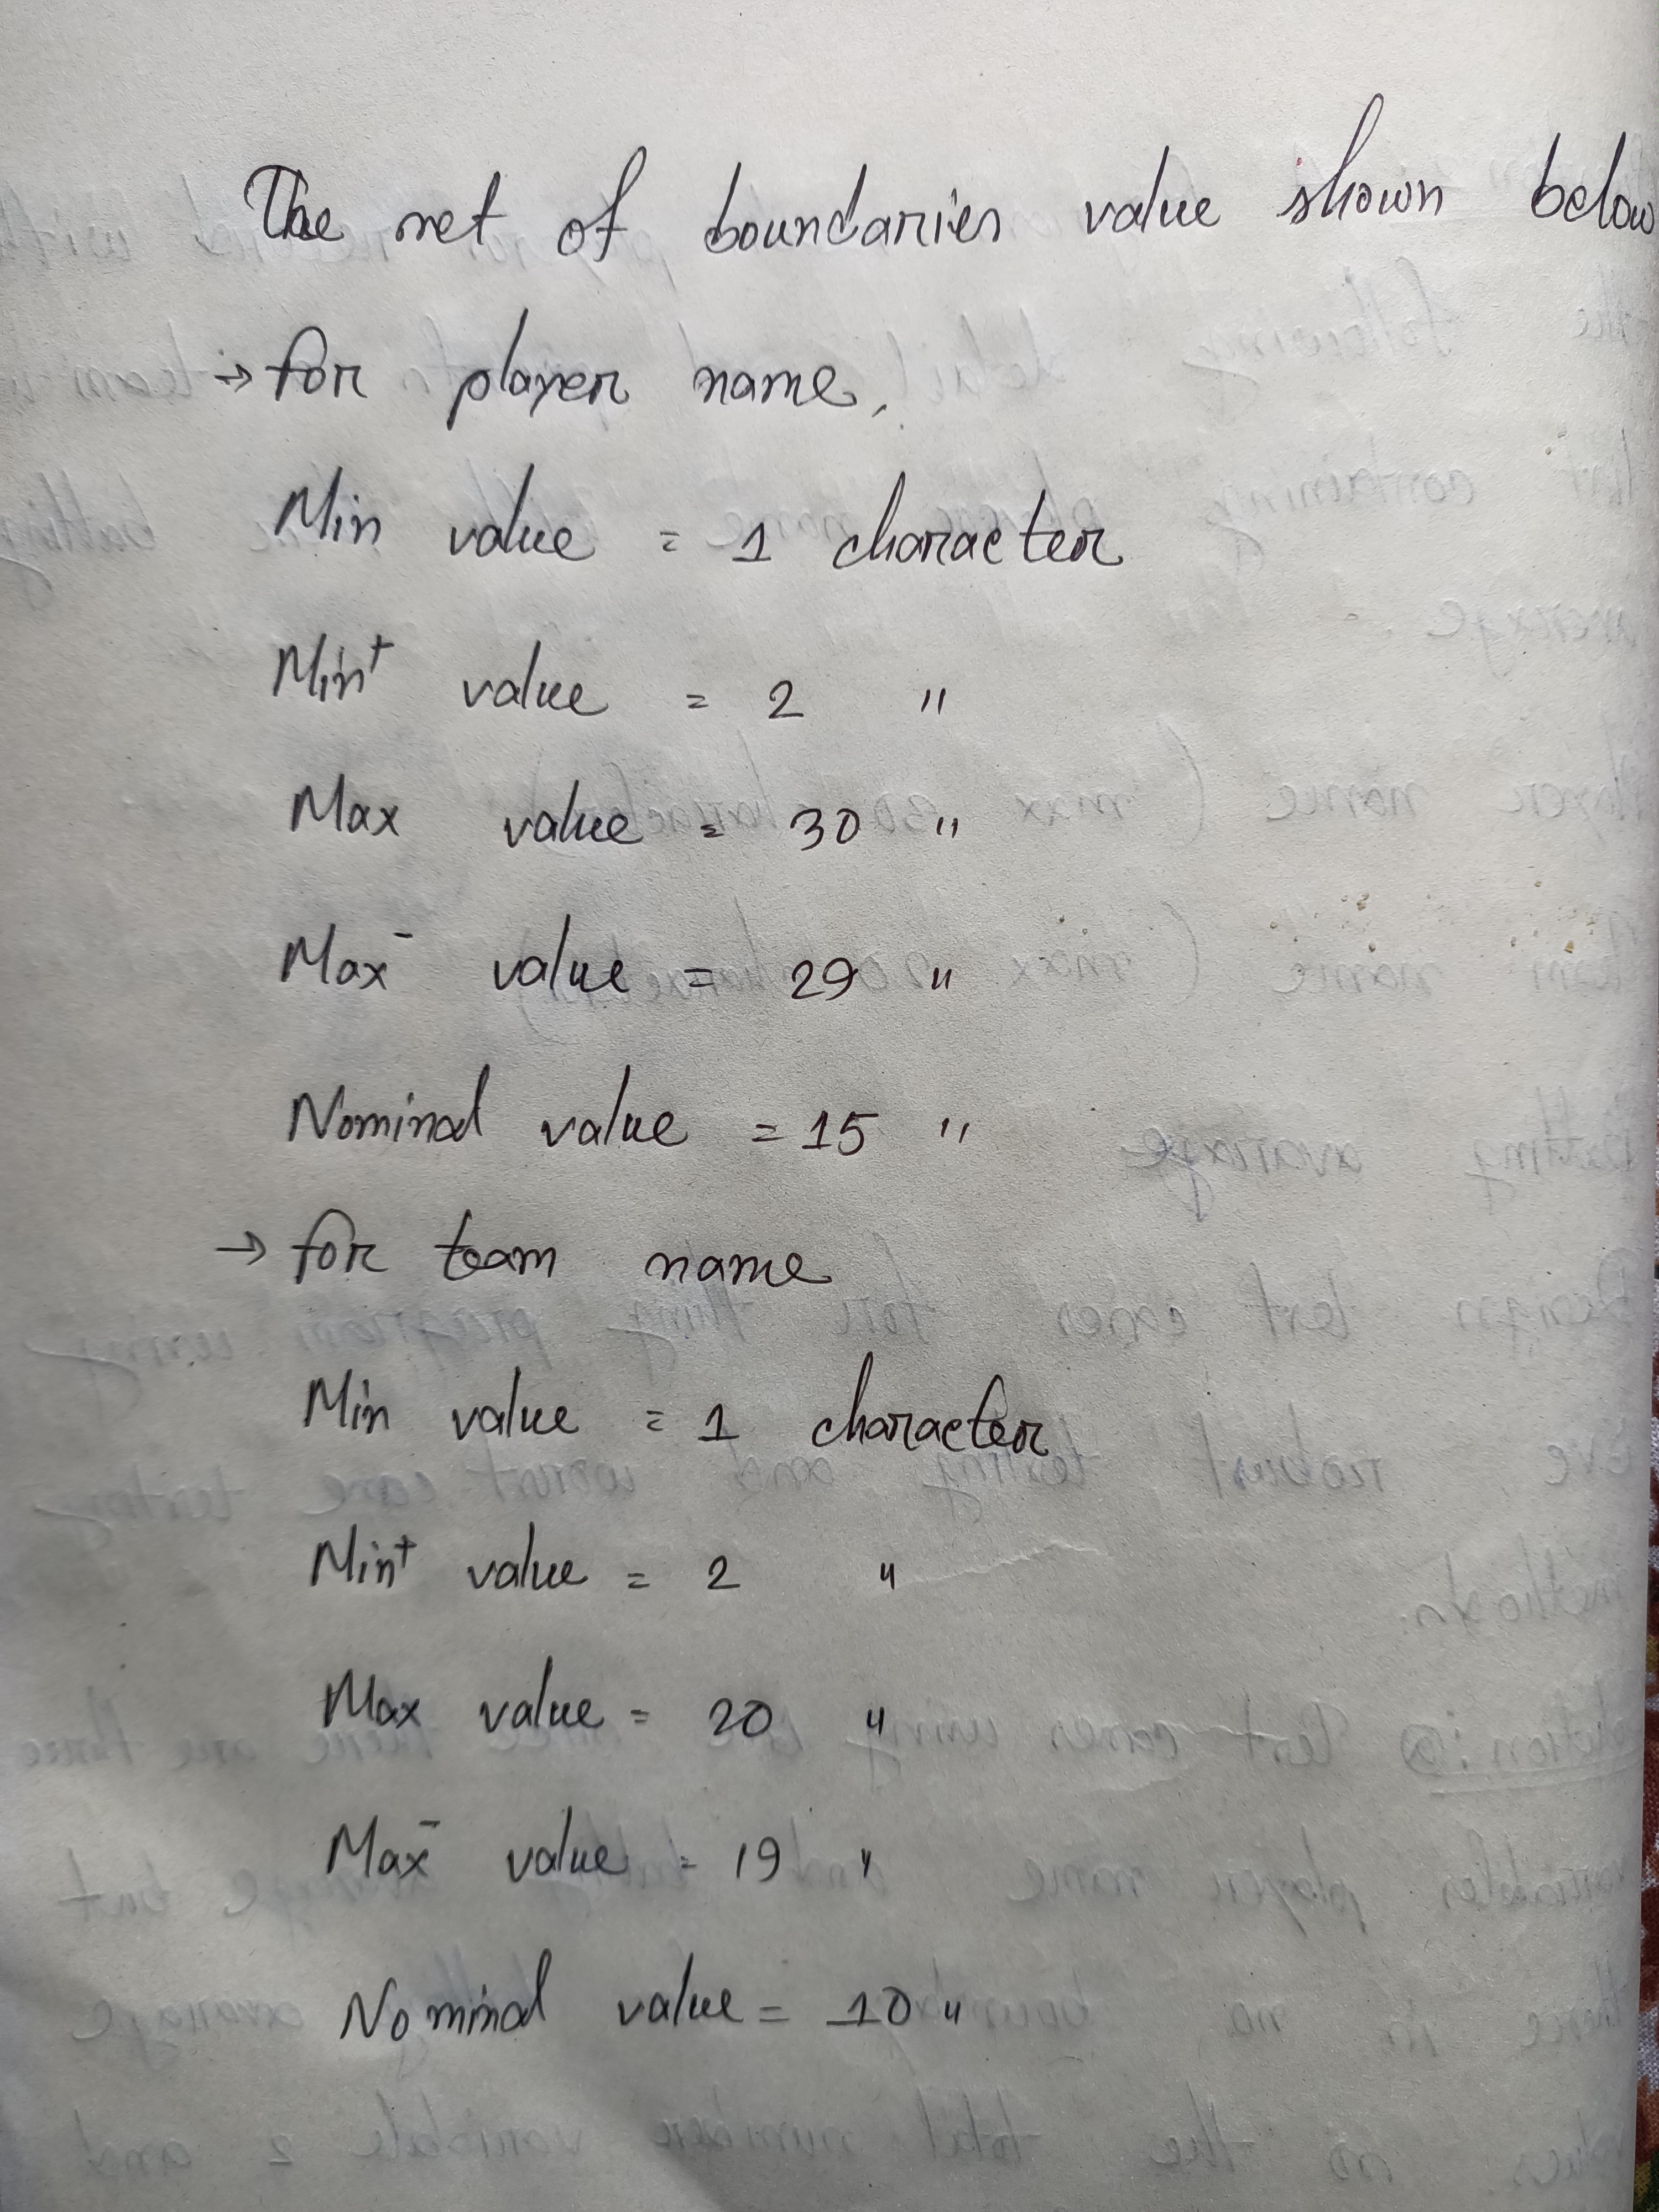 The set of boundaries value shown below
→ for player name,
Min value = 1 character
Min+ value = 2 "
Max value = 30 "
Max- value = 29 "
Nominal value = 15 "
→ for team name
Min value = 1 character
Min+ value = 2 "
Max value = 20 "
Max- value = 19 "
Nominal value = 10 "